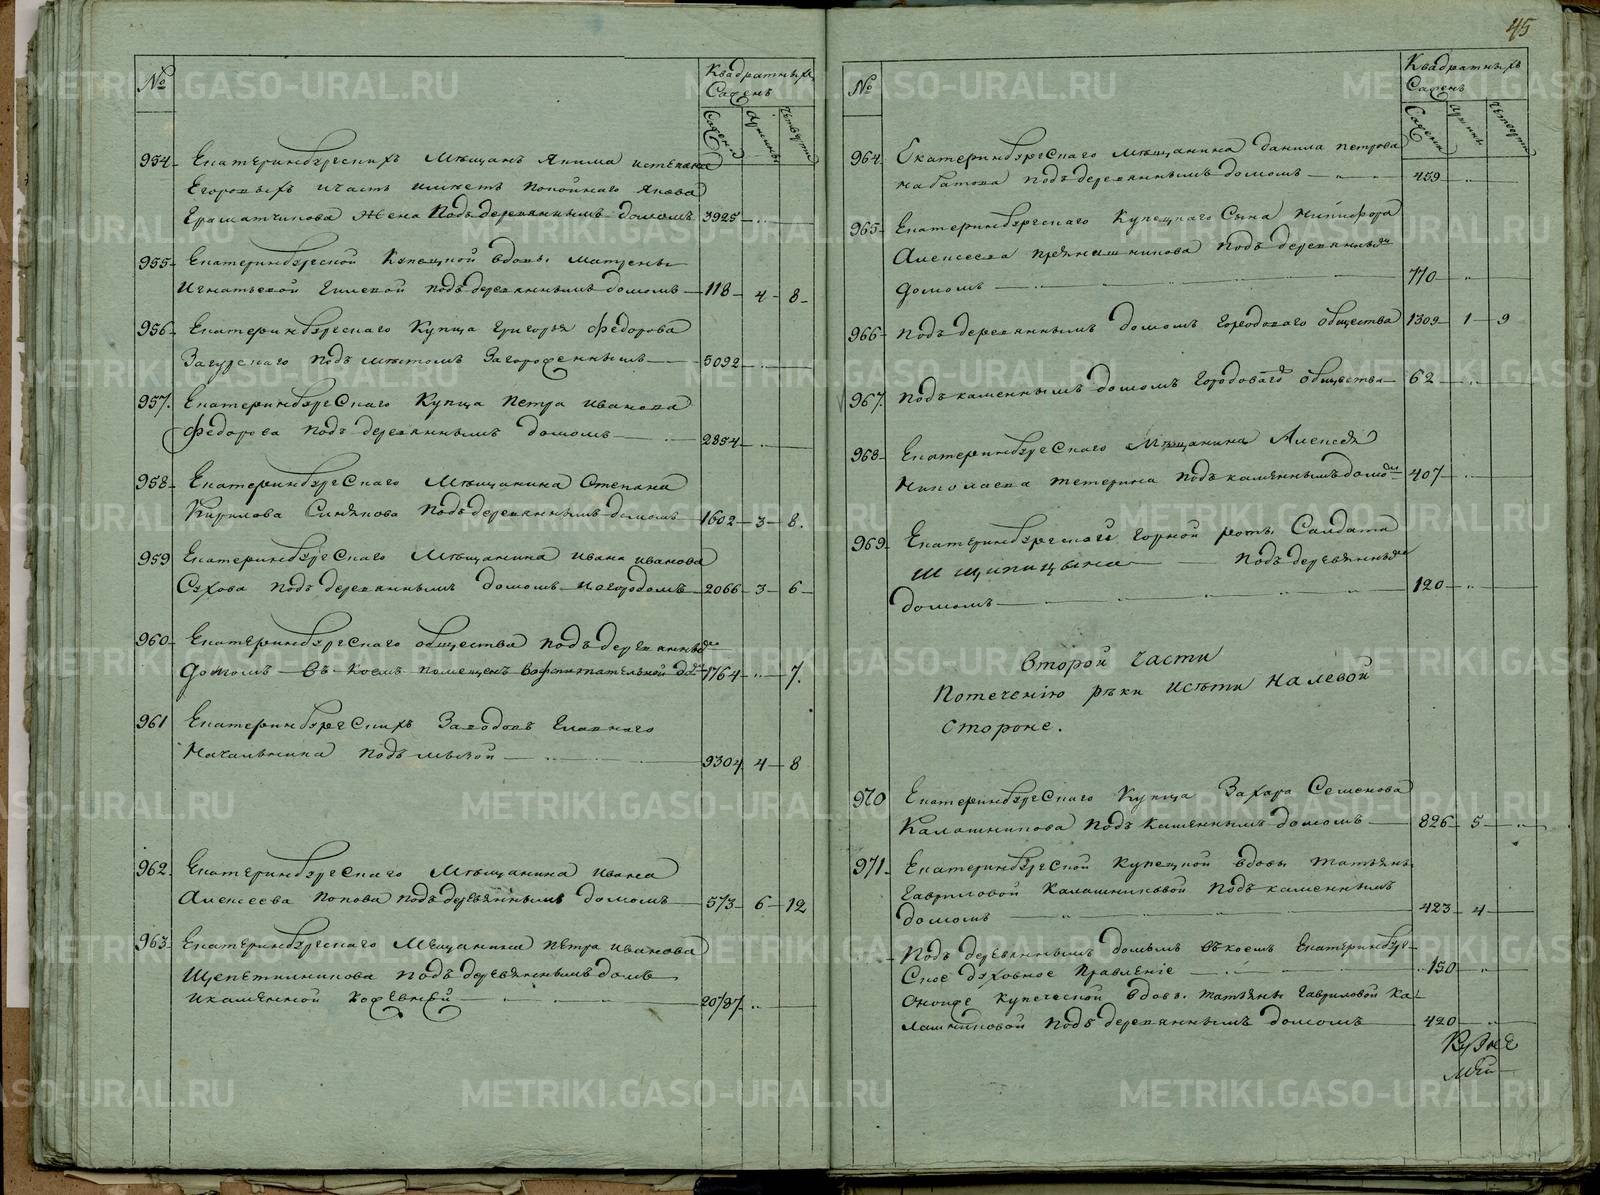 №
Квадратныхъ
Саженъ
Сажени
Аршины
Четверти
954 Екатеринбургскихъ мещанъ Якима и Степана
Егоровыхъ и часть имеетъ покойнаго Якова
Граматчикова жена подъ деревяннымъ домомъ 3925
955 Екатеринбургской купецкой вдовы Матрены
Игнатьевой Гилевой подъ деревяннымъ домомъ 118 4 8
956 Екатеринбургскаго купца Григорья Федорова
Загурскаго подъ местомъ загороженнымъ 5092
957. Екатеринбургскаго купца Петра Иванова
Федорова подъ деревяннымъ домомъ 2854
958 Екатеринбургскаго мещанина Степана
Кирилова Синякова подъ деревяннымъ домомъ 1602 3 8.
959 Екатеринбургскаго мещанина Ивана Иванова
Сухова подъ деревяннымъ домомъ и огородомъ 2066 3 6
960 Екатеринбургскаго общества подъ деревяннымъ
домомъ въ коемъ помещенъ воспитательной домъ 1764 7.
961 Екатеринбургскихъ заводовъ Главнаго
Начальника подъ мызой 9304 4 8
962. Екатеринбургскаго мещанина Ивана
Алексеева Попова подъ деревяннымъ домомъ 573 6 12
963 Екатеринбургскаго мещанина Петра Иванова
Щепетильникова подъ деревяннымъ домъ
и каменной кофевней 2087
45
№
Квадратныхъ
Саженъ
Сажени
Аршины
Четверти
964 Екатеринбургскаго мещанина Данила Петрова
Набатова подъ деревяннымъ домомъ 459
965 Екатеринбургскаго купецкаго сына Никифора
Алексеева Прянишникова подъ деревяннымъ
домомъ 770
966 подъ деревяннымъ домомъ городоваго общества 1309 1 9
967. подъ каменнымъ домомъ городоваго общества 62
968 Екатеринбургскаго мещанина Алексея
Николаева Тетерина подъ каменнымъ домомъ 407
969 Екатеринбургской горной роты салдата
Шипицына подъ деревяннымъ
домомъ 120
Второй части
по течению реки Исети на левой
стороне.
970 Екатеринбургскаго купца Захара Семенова
Калашникова подъ каменнымъ домомъ 826 5
971. Екатеринбургской купецкой вдовы Татьяны
Гавриловой Калашниковой подъ каменнымъ
домомъ 423 4
Подъ деревяннымъ домомъ въ коемъ Екатеринбург-
ское духовное правленіе 150
Оной же купеческой вдовы Татьяны Гавриловой Ка-
лашниковой подъ деревяннымъ домомъ 420
METRIKI.GASO-URAL.RU